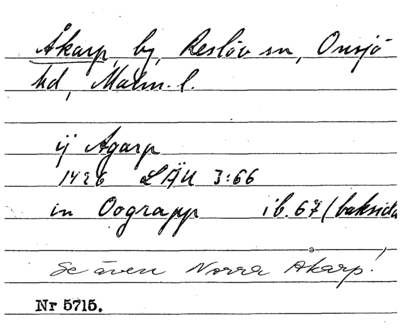 Åkarp, by, Reslöv sn, Onsjö
hd, Malm. l.
ij Agarp
1426 LÄU 3:66
in Oograpp ib. 67 (baksida
Se även Norra Åkarp!
Nr 5715.